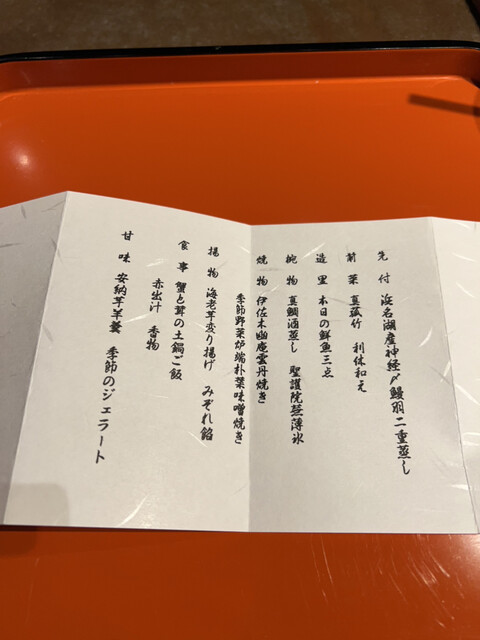 先付 浜名湖産神経〆鰻羽二重蒸し
前菜 真菰竹 利休和え
造里 本日の鮮魚三点
椀物 真鯛酒蒸し 聖護院蕪薄氷
焼物 伊佐木幽庵雲丹焼き
季節野菜炉端朴葉味噌焼き
揚物 海老芋変り揚げ みぞれ餡
食事 蟹と茸の土鍋ご飯
赤出汁 香物
甘味 安納芋羊羹 季節のジェラート